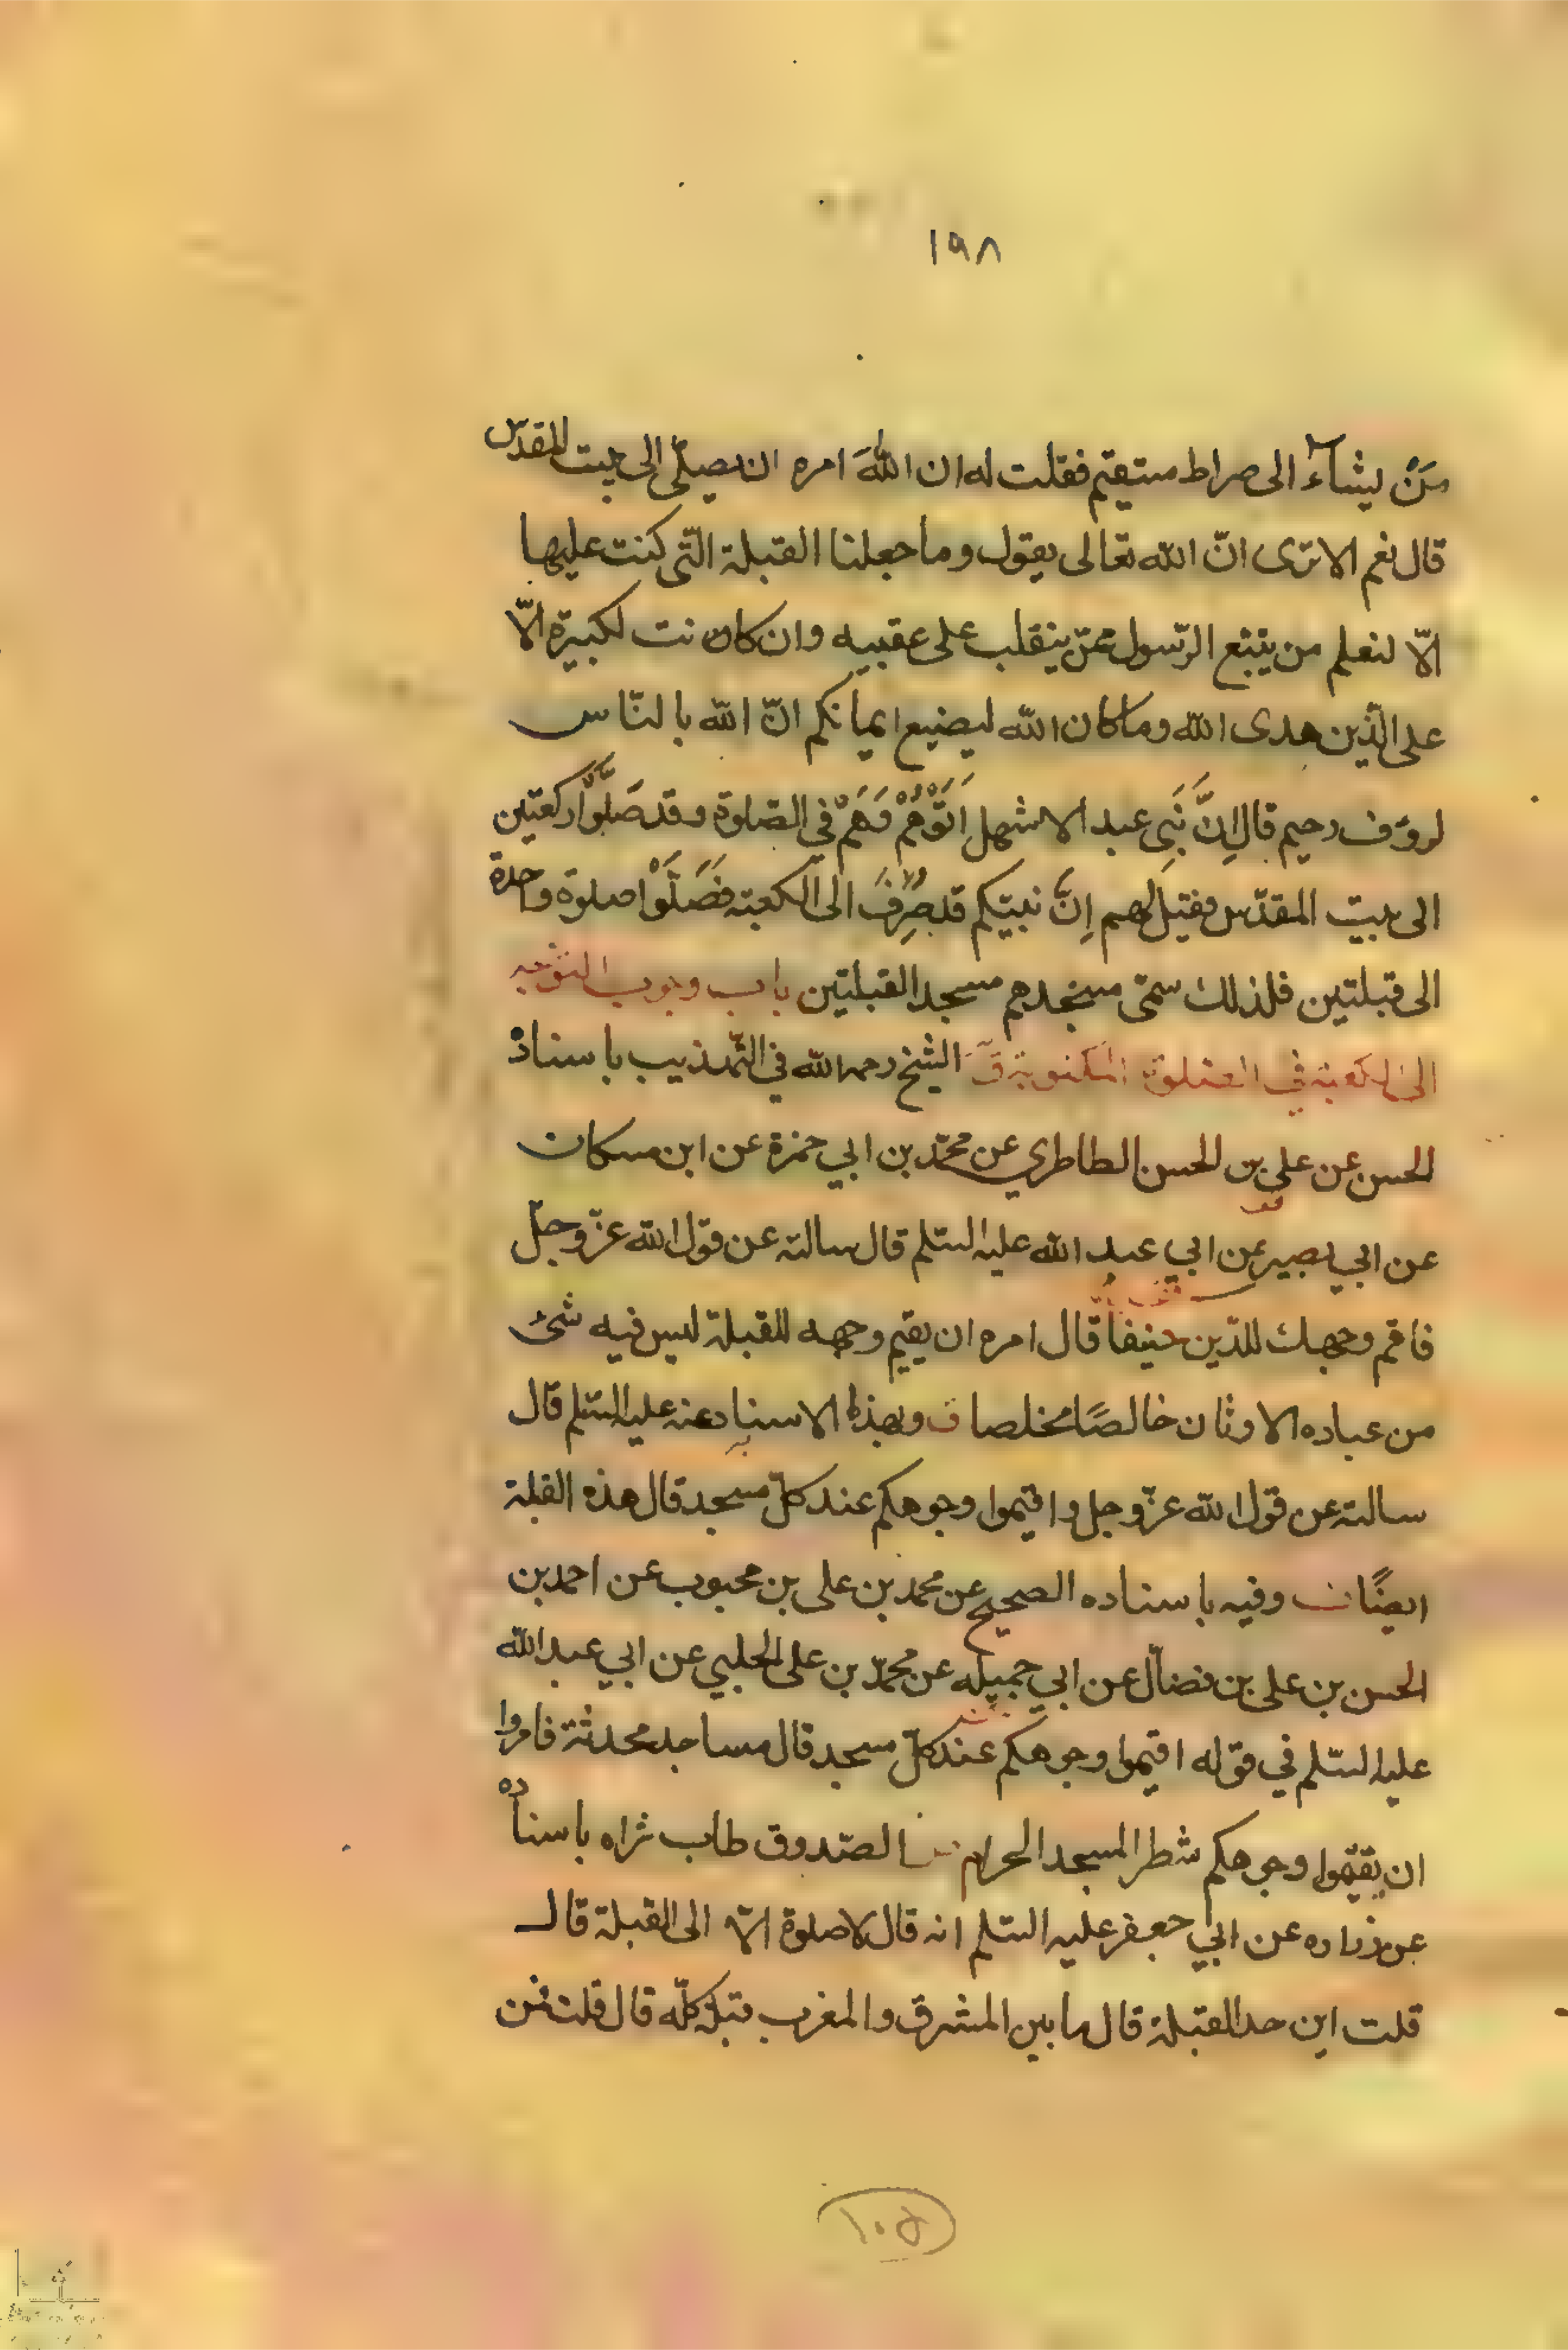 ١٩٨
مَنْ يشآء الى صراط مستقيم فقلت له ان اللهَ امره ان يصلّي الى بيت المقدّس
قال نعم الا ترى انّ الله تعالى يقول وما جعلنا القبلة الّتي كنت عليها
الّا لنعلم من يتبع الرّسول ممّن ينقلب على عقبيه وان كان نت لكبيرة الّا
على الّذين هدى الله وما كان الله ليضيع ايمانكم انّ الله بالنّاس
لروف رحيم قال اِنَّ بَنِي عبد الاشهل اَتَوْهُمْ وَهُمْ في الصّلوة وقد صَلَّوْا ركعتين
الى بيت المقدّس فقيل لهم اِنَّ نبيّكم قد صُرِفَ الى الكعبة فَصَلَّوْا صلوة واحدة
الى قبلتين فلذلك سمّى مسجدهم مسجد القبلتين باب وجوب التوجه
الى الكعبة في الصلوة المكتوبة قَ الشّيخ رحمه الله في التّهذيب باسناده
الحسن عن علي بن الحسن الطاطري عن محمّد بن ابي حمزة عن ابن مسكان
عن ابي بصير عن ابي عبد الله عليه السّلم قال سالته عن قول الله عزّ وجلّ
فاقم وجهك للدّين حنيفا قال امره ان يقيم وجهه للقبلة ليس فيه شئ
من عباده الاوثان خالصًا مخلصا ق وبهذا الاسناد عنه عليه السّلم قال
سالته عن قول الله عزّ وجل واقيموا وجوهكم عند كلّ مسجد قال هذه القبلة
ايضًا وفيه باسناده الصحيح عن محمد بن على بن محبوب عن احمد بن
الحسن بن على بن فضال عن ابي جميله عن محمّد بن على الحلبي عن ابي عبد الله
عليه السّلم في قوله اقيموا وجوهكم عند كلّ مسجد قال مساجد محدثة فامروا
ان يقيموا وجوهكم شطر المسجد الحرام الصّدوق طاب ثراه باسناده
عن زراره عن ابي جعفر عليه السّلم انه قال لا صلوة الّا الى القبلة قال
قلت اين حد القبلة قال ما بين المشرق والمغرب قبلة كلّه قال قلت فمن